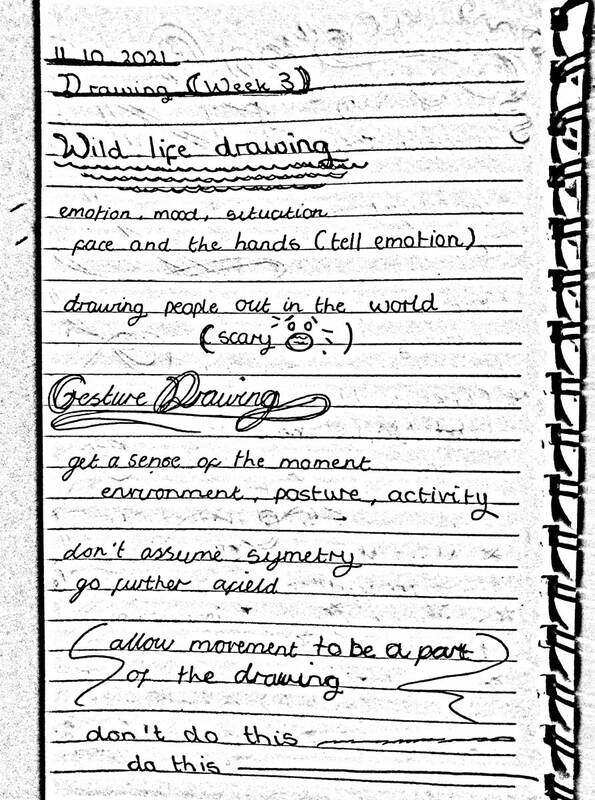 11.10.2021
Drawing (Week 3)
Wild life drawing
emotion, mood, situation
face and the hands (tell emotion)
drawing people out in the world
(scary )
Gesture Drawing
get a sense of the moment
environment, posture, activity
don't assume symetry
go further afield
allow movement to be a part
of the drawing
don't do this
do this